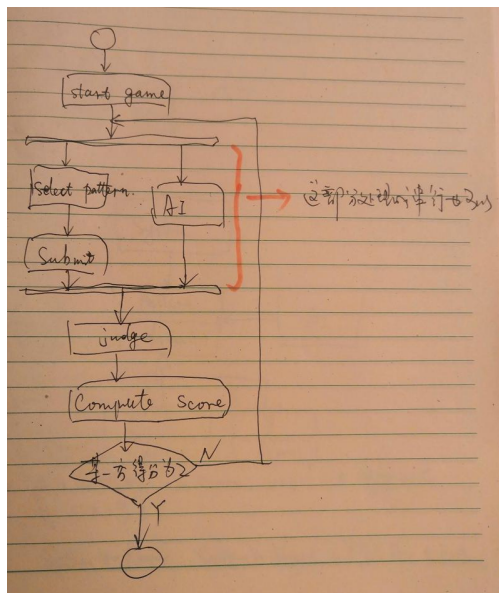 start game
Select pattern.
AI
Submit
这部分处理成串行也可以
judge
Compute Score
某一方得分为2
N
Y